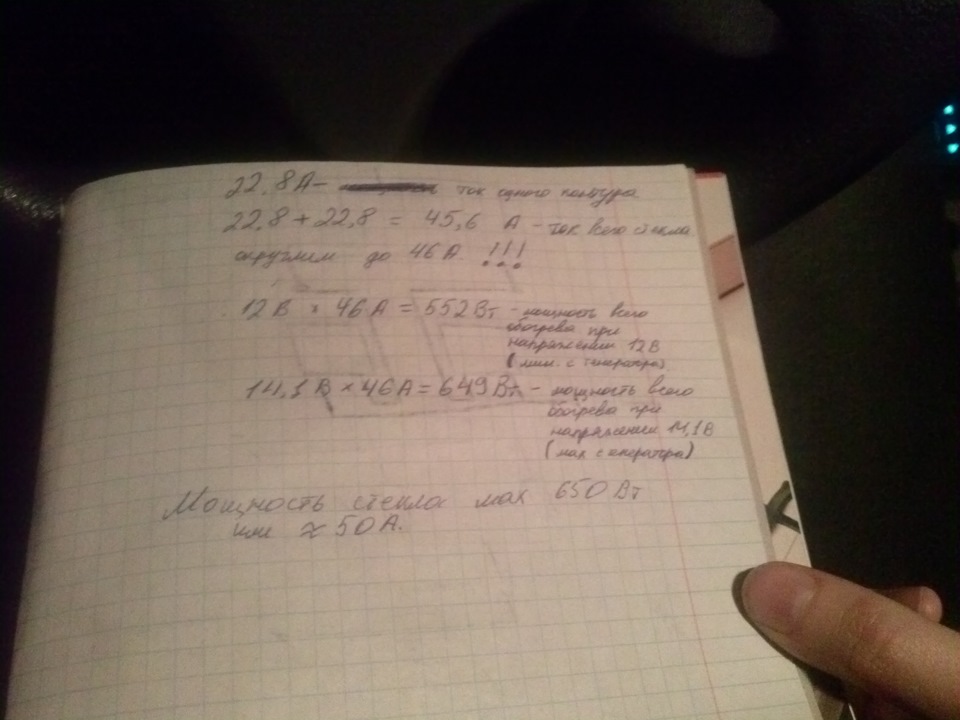 22,8А - ток одного контура
22,8 + 22,8 = 45,6 А - ток всего стекла
округлим до 46А. !!!
12 В × 46 А = 552 Вт - мощность всего
обогрева при
напряжении 12В
(мин. с генератора)
14,1 В × 46 А = 649 Вт - мощность всего
обогрева при
напряжении 14,1В
(мах с генератора)
Мощность стекла мах 650 Вт
или ≈ 50 А.